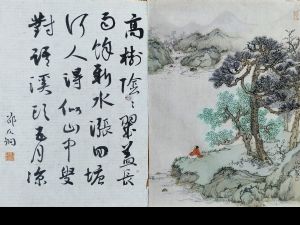 高樹陰〻翠蓋長
雨餘新水漲回塘
何人得似山中叟
對語溪頭五月涼